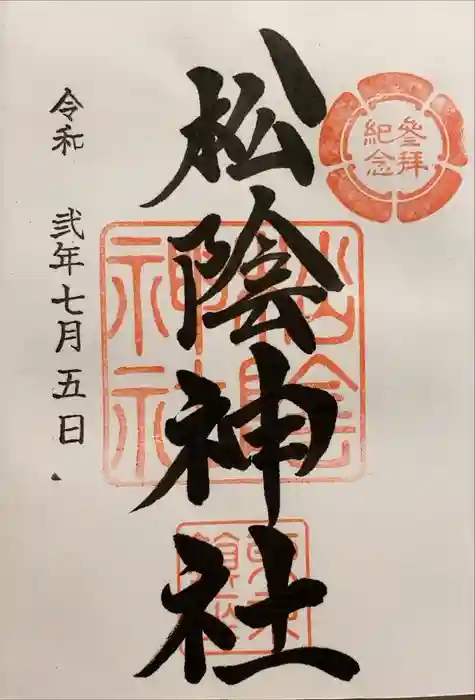 參拝
紀念
松陰神社
松陰
神社
東京
鎮座
令和 弐年七月五日